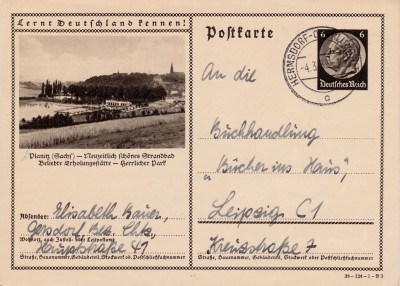 Lernt Deutschland kennen!
Planitz (Sachs) — Neuzeitlich schönes Strandbad
Beliebte Erholungsstätte — Herrlicher Park
Absender: Elisabeth Bauer,
Gersdorf Bez. Chtz.,
Wohnort, auch Zustell- oder Leitpostamt
Hauptstraße 41
Straße, Hausnummer, Gebäudeteil, Stockwerk od. Postschließfachnummer
Postkarte
6 6
Deutsches Reich
HERMSDORF-
-4.3
An die
Buchhandlung
„Bücher ins Haus",
Leipzig C1
Kreuzstraße 7
Straße, Hausnummer, Gebäudeteil, Stockwerk od. Postschließfachnummer